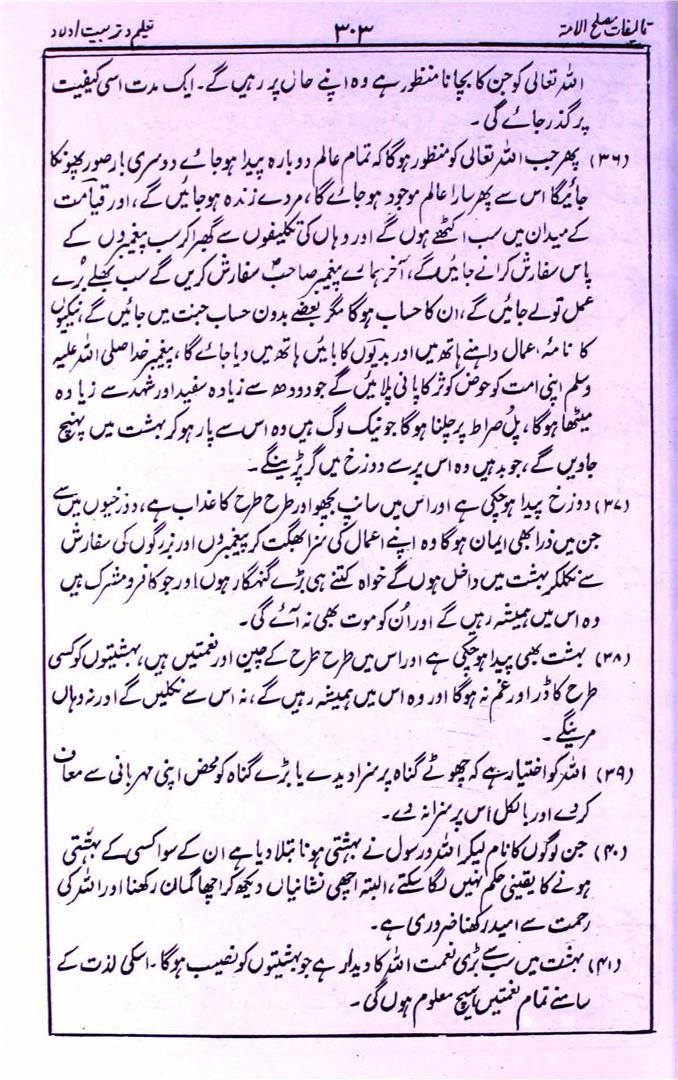 تالیفات مصلح الامتہ
۳۰۳
تعلیم و تربیت اولاد
اللہ تعالی کو جن کا بچانا منظور ہے وہ اپنے حال پر رہیں گے۔ ایک مدت اسی کیفیت
پر گذر جائے گی۔
(۳۶) پھر جب اللہ تعالی کو منظور ہوگا کہ تمام عالم دوبارہ پیدا ہوجائے دوسری بار صور پھونکا
جائیگا اس سے پھر سارا عالم موجود ہو جائے گا، مردے زندہ ہوجائیں گے، اور قیامت
کے میدان میں سب اکٹھے ہوں گے اور وہاں کی تکلیفوں سے گھبرا کر سب پیغمبروں کے
پاس سفارش کرانے جائیں گے، آخر ہمارے پیغمبر صاحبؐ سفارش کریں گے سب بھلے بُرے
عمل تولے جائیں گے، ان کا حساب ہوگا مگر بعضے بدون حساب جنت میں جائیں گے، نیکیوں
کا نامۂ اعمال داہنے ہاتھ میں اور بدیوں کا بائیں ہاتھ میں دیا جائے گا، پیغمبر خدا صلی اللہ علیہ
وسلم اپنی امت کو حوض کوثر کا پانی پلائیں گے جو دودھ سے زیادہ سفید اور شہد سے زیادہ
میٹھا ہوگا، پل صراط پر چلنا ہوگا جو نیک لوگ ہیں وہ اس سے پار ہو کر بہشت میں پہنچ
جاویں گے، جو بد ہیں وہ اس پر سے دوزخ میں گر پڑینگے۔
(۳۷) دوزخ پیدا ہوچکی ہے اور اس میں سانپ بچھو اور طرح طرح کا عذاب ہے، دوزخیوں میں سے
جن میں ذرا بھی ایمان ہوگا وہ اپنے اعمال کی سزا بھگت کر پیغمبروں اور بزرگوں کی سفارش
سے نکلکر بہشت میں داخل ہوں گے خواہ کتنے ہی بڑے گنہگار ہوں! اور جو کافر و مشرک ہیں
وہ اس میں ہمیشہ رہیں گے اور اُن کو موت بھی نہ آئے گی۔
(۳۸) بہشت بھی پیدا ہوچکی ہے اور اس میں طرح طرح کے چین اور نعمتیں ہیں، بہشتیوں کو کسی
طرح کا ڈر اور غم نہ ہوگا اور وہ اس میں ہمیشہ رہیں گے، نہ اس سے نکلیں گے اور نہ وہاں
مرینگے۔
(۳۹) اللہ کو اختیار ہے کہ چھوٹے گناہ پر سزا دیدے یا بڑے گناہ کو محض اپنی مہربانی سے معاف
کر دے اور بالکل اس پر سزا نہ دے۔
(۴۰) جن لوگوں کا نام لیکر اللہ و رسول نے بہشتی ہونا بتلا دیا ہے ان کے سوا کسی کے بہشتی
ہونے کا یقینی حکم نہیں لگا سکتے، البتہ اچھی نشانیاں دیکھ کر اچھا گمان رکھنا اور اللہ کی
رحمت سے امید رکھنا ضروری ہے۔
(۴۱) بہشت میں سب سے بڑی نعمت اللہ کا دیدار ہے جو بہشتیوں کو نصیب ہوگا۔ اسکی لذت کے
سامنے تمام نعمتیں ہیچ معلوم ہوں گی۔